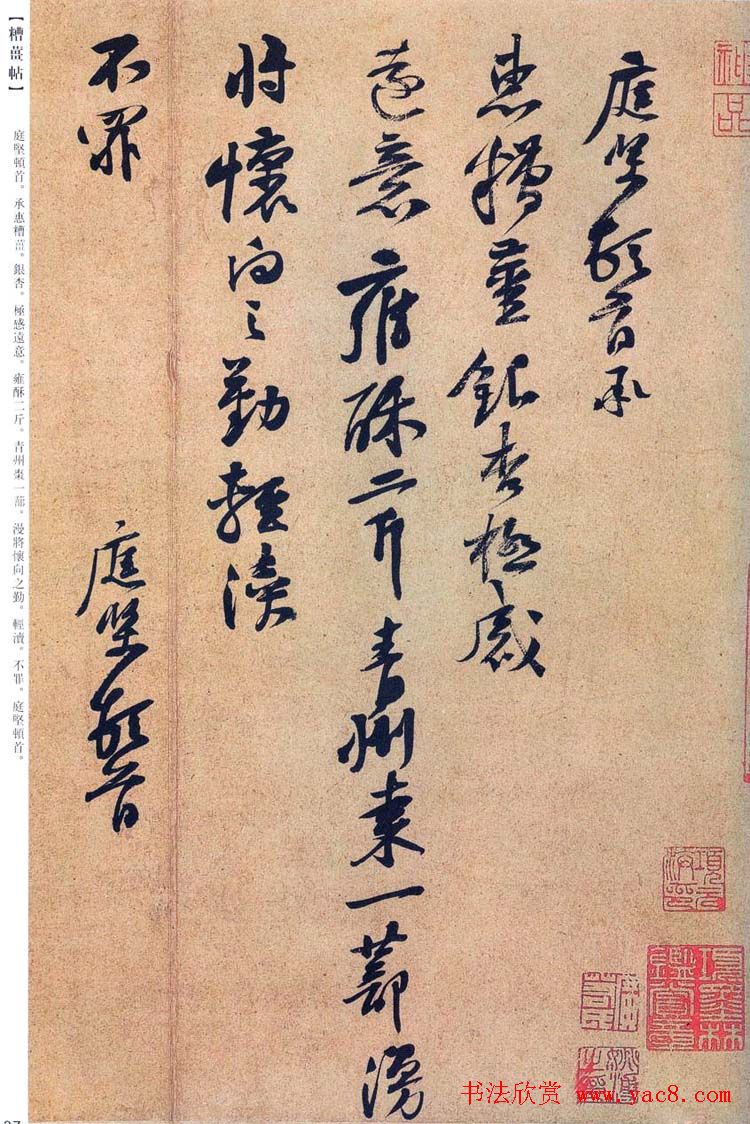 庭堅頓首承
惠糟薑銀杏極感
遠意雍酥二斤青州棗一蔀漫
将懷向之勤輕瀆
不罪
庭堅頓首
神品
項元汴印
項墨林鑑賞章
【糟薑帖】
庭堅頓首。承惠糟薑。銀杏。極感遠意。雍酥二斤。青州棗一蔀。漫將懷向之勤。輕瀆。不罪。庭堅頓首。
书法欣赏 www.yac8.com